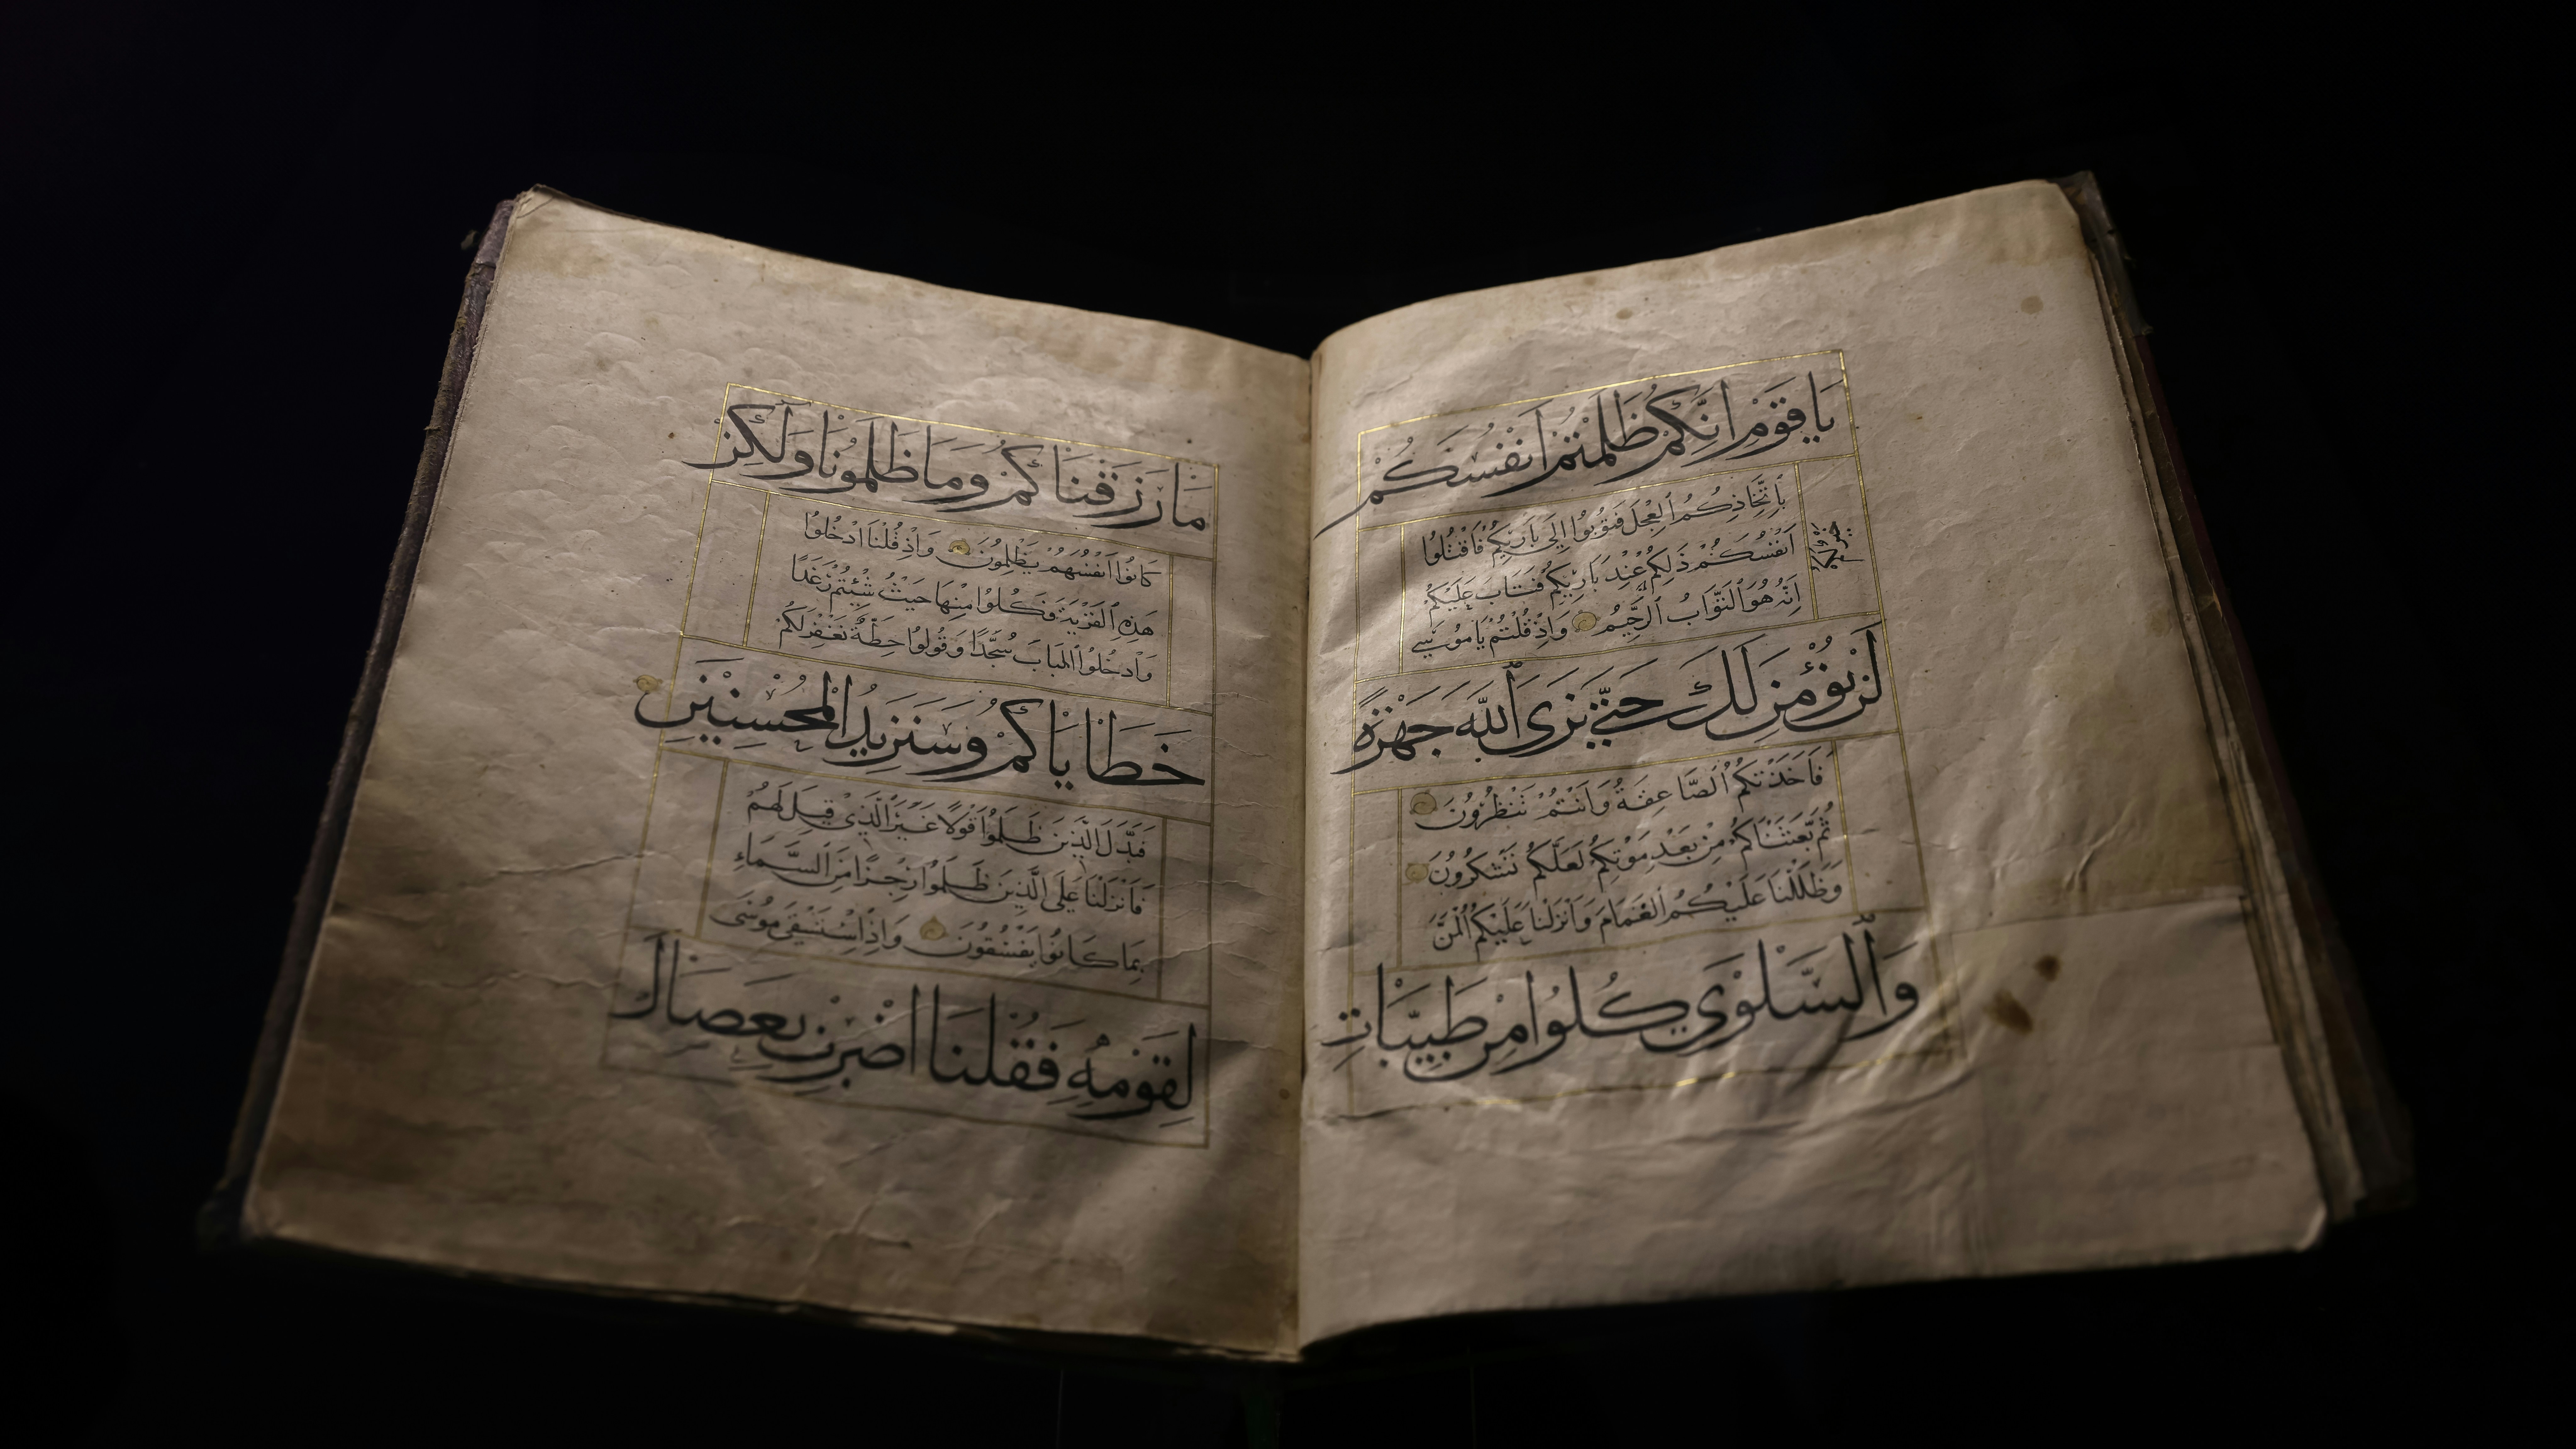 يَا قَوْمِ اِنَّكُمْ ظَلَمْتُمْ اَنْفُسَكُمْ
بِاتِّخَاذِكُمُ الْعِجْلَ فَتُوبُوا اِلَى بَارِئِكُمْ فَاقْتُلُوا
اَنْفُسَكُمْ ذَلِكُمْ عِنْدَ بَارِئِكُمْ فَتَابَ عَلَيْكُمْ
اِنَّهُ هُوَ التَّوَّابُ الرَّحِيمُ وَاِذْ قُلْتُمْ يَا مُوسَى
لَنْ نُؤْمِنَ لَكَ حَتَّى نَرَى اللّٰهَ جَهْرَةً
فَاَخَذَتْكُمُ الصَّاعِقَةُ وَاَنْتُمْ تَنْظُرُونَ
ثُمَّ بَعَثْنَاكُمْ مِنْ بَعْدِ مَوْتِكُمْ لَعَلَّكُمْ تَشْكُرُونَ
وَظَلَّلْنَا عَلَيْكُمُ الْغَمَامَ وَاَنْزَلْنَا عَلَيْكُمُ الْمَنَّ
وَالسَّلْوَى كُلُوا مِنْ طَيِّبَاتِ
مَا رَزَقْنَاكُمْ وَمَا ظَلَمُونَا وَلَكِنْ
كَانُوا اَنْفُسَهُمْ يَظْلِمُونَ وَاِذْ قُلْنَا ادْخُلُوا
هَذِهِ الْقَرْيَةَ فَكُلُوا مِنْهَا حَيْثُ شِئْتُمْ رَغَدًا
وَادْخُلُوا الْبَابَ سُجَّدًا وَقُولُوا حِطَّةٌ نَغْفِرْ لَكُمْ
خَطَايَاكُمْ وَسَنَزِيدُ الْمُحْسِنِينَ
فَبَدَّلَ الَّذِينَ ظَلَمُوا قَوْلًا غَيْرَ الَّذِي قِيلَ لَهُمْ
فَاَنْزَلْنَا عَلَى الَّذِينَ ظَلَمُوا رِجْزًا مِنَ السَّمَاءِ
بِمَا كَانُوا يَفْسُقُونَ وَاِذِ اسْتَسْقَى مُوسَى
لِقَوْمِهِ فَقُلْنَا اضْرِبْ بِعَصَاكَ